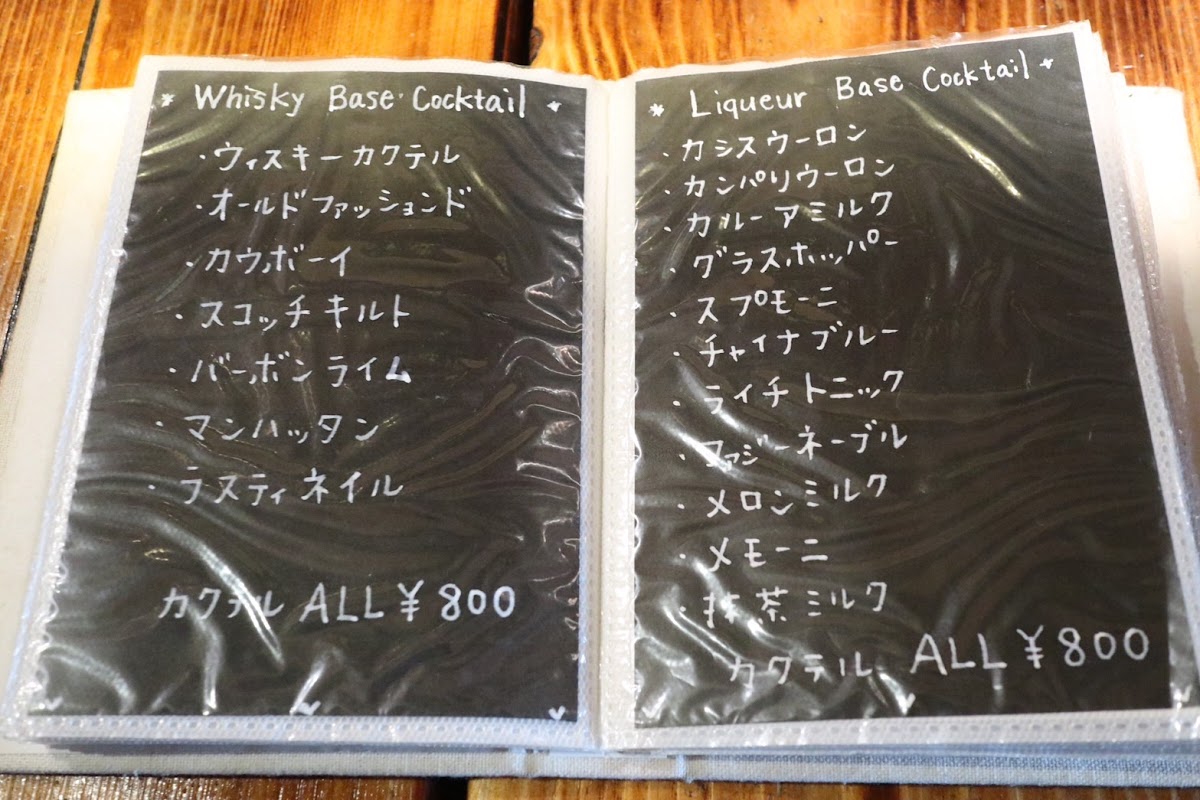 * Whisky Base Cocktail
・ウィスキーカクテル
・オールドファッションド
・カウボーイ
・スコッチキルト
・バーボンライム
・マンハッタン
・ラスティネイル
カクテル ALL ¥800
* Liqueur Base Cocktail
・カシスウーロン
・カンパリウーロン
・カルーアミルク
・グラスホッパー
・スプモーニ
・チャイナブルー
・ライチトニック
・ファジーネーブル
・メロンミルク
・メモーニ
・抹茶ミルク
カクテル ALL ¥800